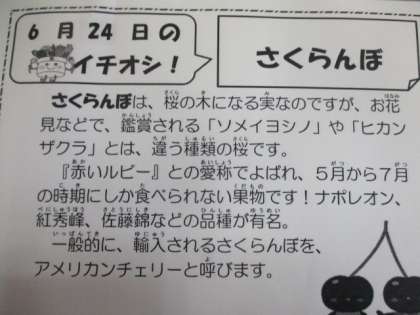 6月24日の
イチオシ！
さくらんぼ
さくらんぼは、桜の木になる実なのですが、お花
見などで、鑑賞される「ソメイヨシノ」や「ヒカン
ザクラ」とは、違う種類の桜です。
『赤いルビー』との愛称でよばれ、5月から7月
の時期にしか食べられない果物です！ナポレオン、
紅秀峰、佐藤錦などの品種が有名。
一般的に、輸入されるさくらんぼを、
アメリカンチェリーと呼びます。